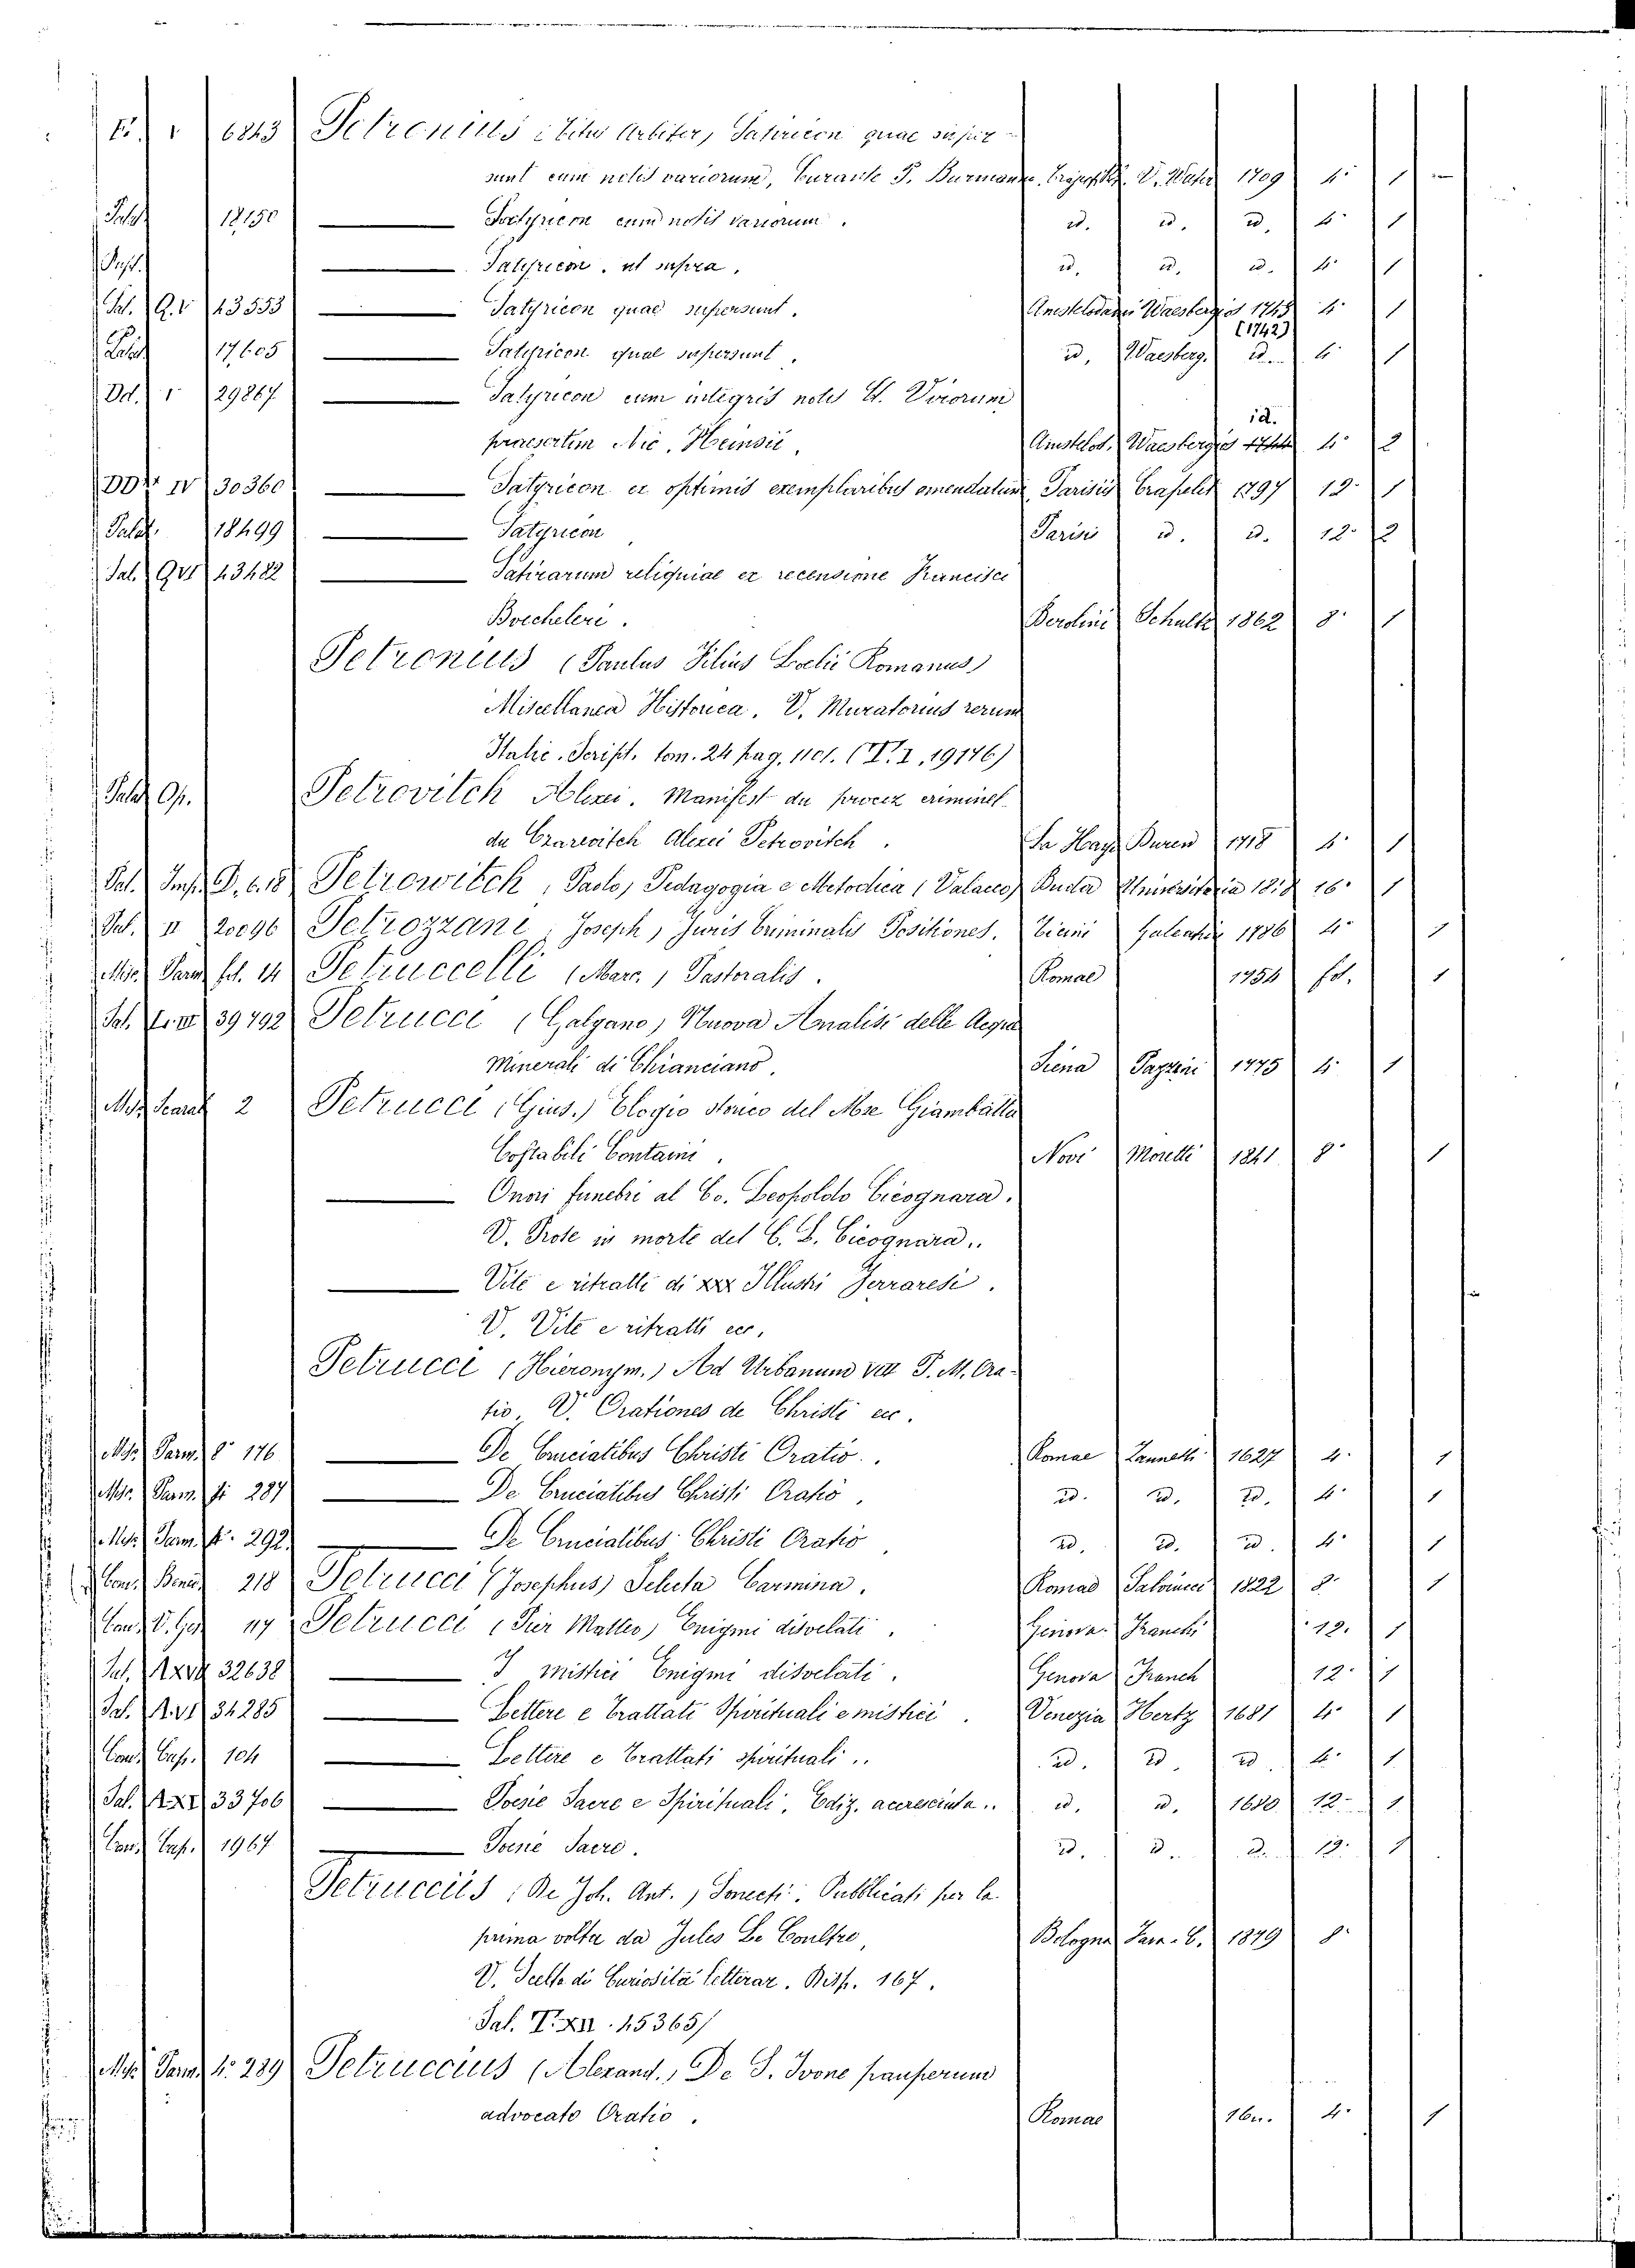 6843 Petronius (Titus Arbiter) Satyricon quae super-
sunt cum notis variorum, Curante P. Burmanno. 1709 4° 1
Palat. 18150 — Satyricon cum notis variorum. id. id. id. 4° 1
— Satyricon, ut supra. id. id. id. 4° 1
Pal. 43553 — Satyricon quae supersunt. Amstelodami Waesbergios 1743 4° 1
(1742)
Palat. 17605 — Satyricon quae supersunt. id. Waesberg. id. 4° 1
Dd. 1 29867 — Satyricon cum integris notis Virorum
id.
praesertim Nic. Heinsii. Amstelod. Waesbergios 4° 2
IV 30360 — Satyricon ex optimis exemplaribus emendatum Parisiis Crapelet 1797 12° 1
Palat. 18499 — Satyricon Parisi id. id. 12° 2
Sal. 43482 — Satirarum reliquiae ex recensione Francisci
Buecheleri. Berolini Schultz 1862 8° 1
Petronius (Paulus Filius Laelii Romanus)
Miscellanea Historica. V. Muratorius rerum
Italic. Script. tom. 24 pag. 1101. (T. I. 19176)
Palat. Op. Petrovitch Alexei. Manifest du procez criminel
du Czarevitch Alexei Petrovitch. La Haye Buren 1718 4° 1
Petrowitch, Paolo, Pedagogia e Metodica (Valacco) Buda 1818 16° 1
Pal. II 20096 Petrozzani, Joseph, Juris Criminalis Positiones. Ticini Galeatia 1786 4° 1
Misc. Parm. fol. 14 Petruccelli (Marc.) Pastoralis. Romae 1754 fol. 1
39792 Petrucci (Galgano) Nuova Analisi delle Acque
Minerali di Chianciano. Siena Pazzini 1775 4° 1
2 Petrucci (Gius.) Elogio storico del Mse Giambatta
Costabili Containi. Novi Moretti 1841 8° 1
— Onori funebri al Co. Leopoldo Cicognara.
V. Prose in morte del C. L. Cicognara.
— Vite e ritratti di XXX Illustri Ferraresi.
V. Vite e ritratti ecc.
Petrucci (Hieronym.) Ad Urbanum VIII P. M. Ora-
tio V. Orationes de Christi ecc.
Misc. Parm. 8° 176 — De Cruciatibus Christi Oratio. Romae Zannetti 1627 4° 1
Misc. Parm. 287 — De Cruciatibus Christi Oratio. id. id. id. 4° 1
Misc. Parm. 4° 292. — De Cruciatibus Christi Oratio id. id. id. 4° 1
Con. Bened. 218 Petrucci (Josephus) Selecta Carmina. Romae Salviucci 1822 8° 1
117 Petrucci (Pier Matteo) Enigmi disvelati. Genova Franchi 12° 1
32638 — I mistici Enigmi disvelati. Genova Franch 12° 1
34285 — Lettere e Trattati Spirituali e mistici. Venezia Hertz 1681 4° 1
Con. Cap. 104 — Lettere e Trattati spirituali.. id. id. id. 4° 1
33706 — Poesie Sacre e Spirituali, Ediz. accresciuta.. id. id. 1680 12° 1
Con. Cap. 1967 — Poesie Sacre. id. id. id. 12° 1
Petrucciis (De Joh. Ant.) Sonetti. Pubblicati per la
prima volta da Jules Le Coultre, Bologna 1879 8°
V. Scelta di Curiosità letterar. Disp. 167.
Sal. T. XII. 45365)
Misc. Parm. 4° 289 Petruccius (Alexand.) De S. Ivone pauperum
advocato Oratio. Romae 16.. 4° 1